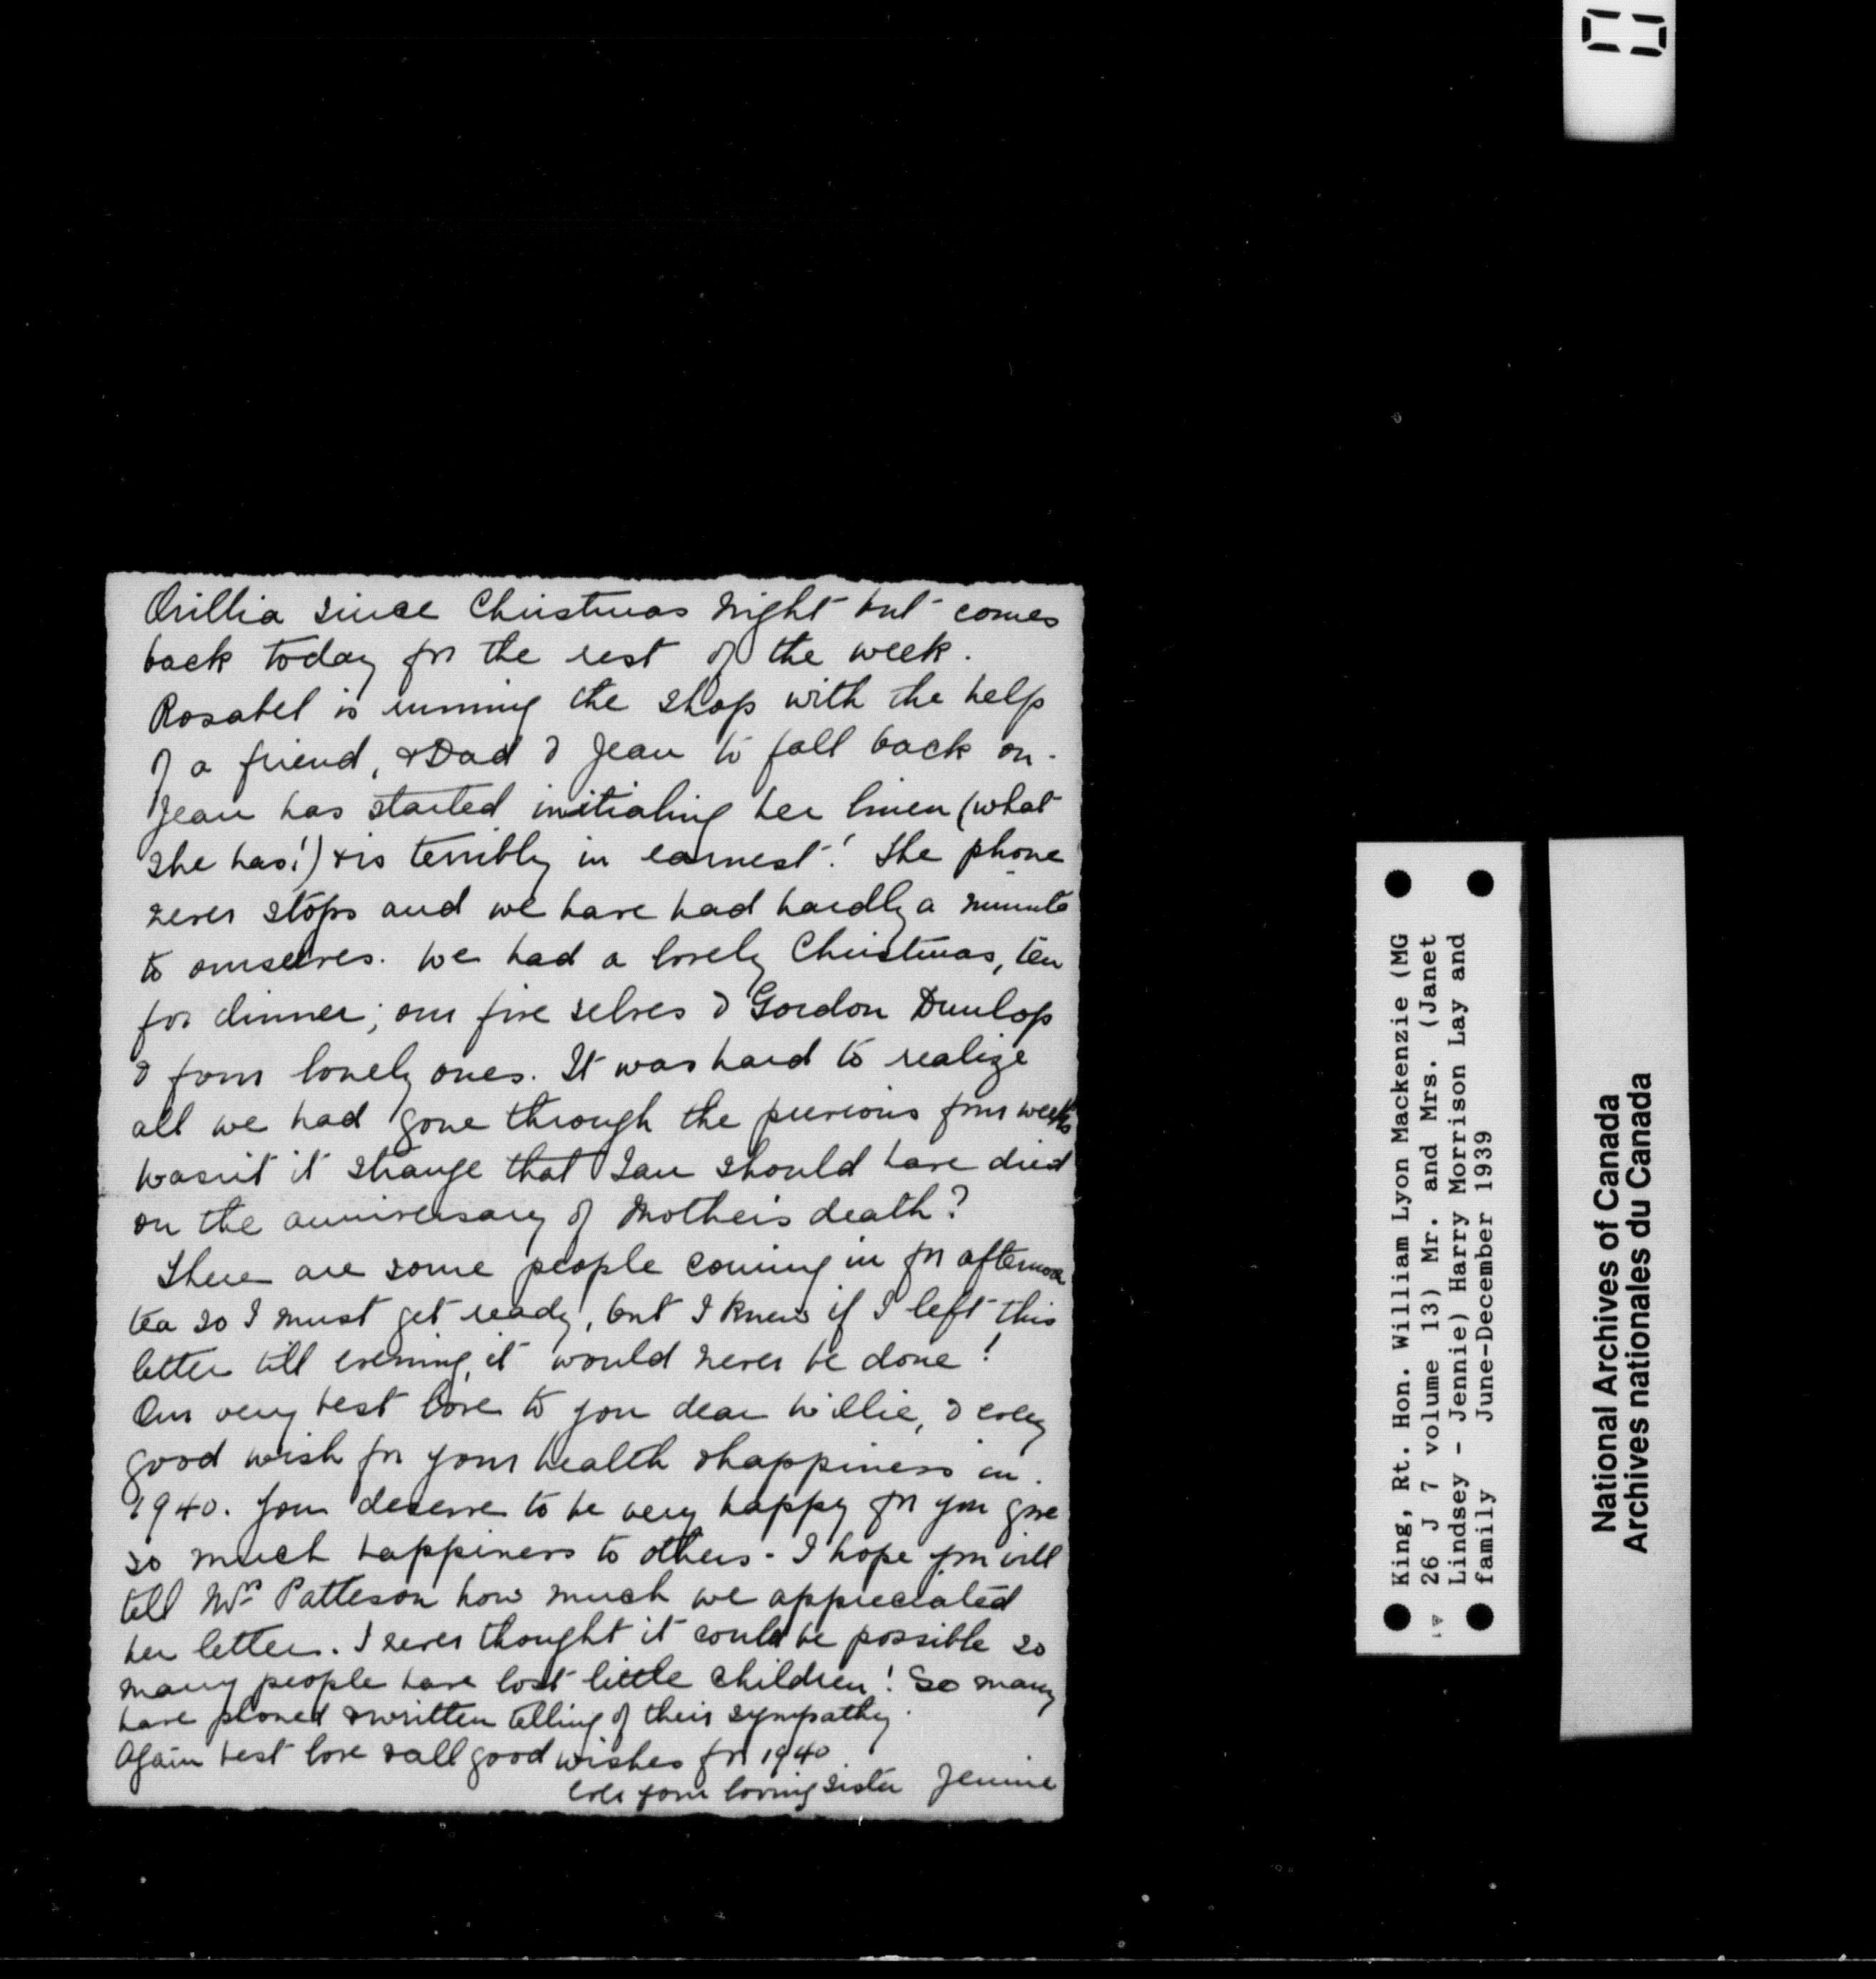 Orillia since Christmas night but comes
back today for the rest of the week.
Rosabel is running the shop with the help
of a friend, & Dad & Jean to fall back on.
Jean has started initialing her linen (what
she has!) & is terribly in earnest! The phone
never stops and we have had hardly a minute
to ourselves. We had a lovely Christmas, ten
for dinner; our five selves & Gordon Dunlop
& four lonely ones. It was hard to realize
all we had gone through the previous four weeks
wasn't it strange that Ian should have died
on the anniversary of Mother's death?
There are some people coming in for afternoon
tea so I must get ready, but I knew if I left this
letter till evening, it would never be done!
Our very best love to you dear Willie, & every
good wish for your health & happiness in
1940. You deserve to be very happy for you give
so much happiness to others - I hope you will
tell Mrs Patteson how much we appreciated
her letter. I never thought it could be possible so
many people have lost little children! So many
have phoned & written telling of their sympathy.
Again best love & all good wishes for 1940
Ever your loving sister Jennie
King, Rt. Hon. William Lyon Mackenzie (MG
26 J 7 volume 13) Mr. and Mrs. (Janet
Lindsey - Jennie) Harry Morrison Lay and
family June-December 1939
National Archives of Canada
Archives nationales du Canada